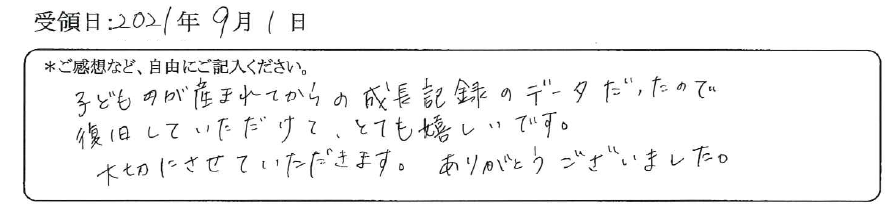 受領日:2021年9月1日
*ご感想など、自由にご記入ください。
子どもが産まれてからの成長記録のデータだったので
復旧していただけて、とても嬉しいです。
大切にさせていただきます。ありがとうございました。